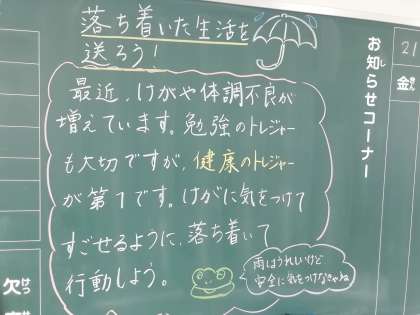 落ち着いた生活を
送ろう!
最近、けがや体調不良が
増えています。勉強のトレジャー
も大切ですが、健康のトレジャー
が第1です。けがに気をつけて
すごせるように、落ち着いて
行動しよう。
雨はうれしいけど
安全に気をつけなきゃね
お知らせコーナー
21
金
欠